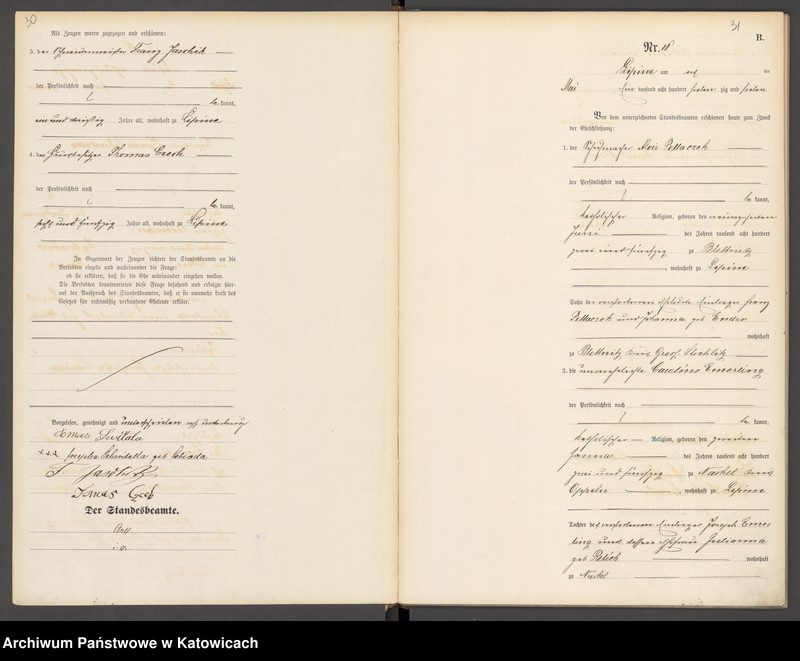 30
Als Zeugen waren zugezogen und erschienen:
3. der Schneidermeister Franz
der Persönlichkeit nach
be kannt,
ein und dreißig Jahre alt, wohnhaft zu Lipine
4. der Hausbesitzer Thomas Czech
der Persönlichkeit nach
be kannt,
sechs und fünfzig Jahre alt, wohnhaft zu Lipine
In Gegenwart der Zeugen richtete der Standesbeamte an die
Verlobten einzeln und nacheinander die Frage:
ob sie erklären, daß sie die Ehe miteinander eingehen wollen.
Die Verlobten beantworteten diese Frage bejahend und erfolgte hier-
auf der Ausspruch des Standesbeamten, daß er sie nunmehr kraft des
Gesetzes für rechtmäßig verbundene Eheleute erkläre.
Vorgelesen, genehmigt und unterschrieben
+++ Josepha geb
Tomas Czech
Der Standesbeamte.
31
B.
Nr. 18
Lipine am ten
Mai Ein tausend acht hundert sieben zig und sieben
Vor dem unterzeichneten Standesbeamten erschienen heute zum Zweck
der Eheschließung:
1. der Schuhmacher Alois Pollaczek
der Persönlichkeit nach
be kannt,
katholischer Religion, geboren den neunzehnten
Juni des Jahres tausend acht hundert
zwei und fünfzig zu Blottnitz
, wohnhaft zu Lipine
Sohn der verstorbenen Eheleute Einlieger Franz
Pollaczek und Johanna geb
wohnhaft
zu Blottnitz Kreis Groß Strehlitz
2. die unverehelichte Caroline Emerling
der Persönlichkeit nach
be kannt,
katholischer Religion, geboren den zweiten
Januar des Jahres tausend acht hundert
zwei und fünfzig zu Nackel Kreis
Oppeln , wohnhaft zu Lipine
Tochter des verstorbenen Einlieger Joseph Emer
ling und dessen Ehefrau Julianna
geb wohnhaft
zu Nackel
Archiwum Państwowe w Katowicach